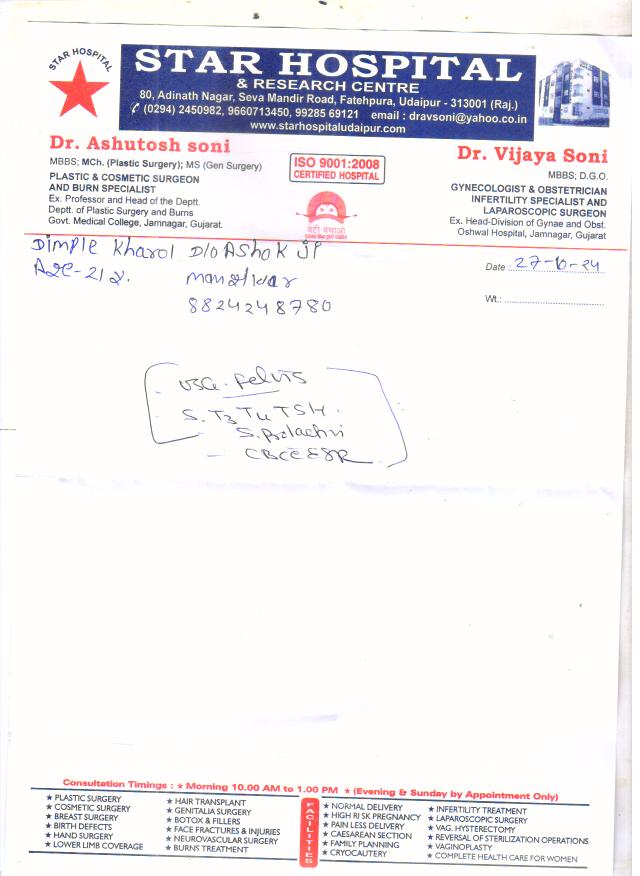 STAR HOSPITAL
STAR HOSPITAL
& RESEARCH CENTRE
80, Adinath Nagar, Seva Mandir Road, Fatehpura, Udaipur - 313001 (Raj.)
(0294) 2450982, 9660713450, 99285 69121 email : dravsoni@yahoo.co.in
www.starhospitaludaipur.com
Dr. Ashutosh soni
MBBS; MCh. (Plastic Surgery); MS (Gen Surgery)
PLASTIC & COSMETIC SURGEON
AND BURN SPECIALIST
Ex. Professor and Head of the Deptt.
Deptt. of Plastic Surgery and Burns
Govt. Medical College, Jamnagar, Gujarat.
ISO 9001:2008
CERTIFIED HOSPITAL
बेटी बचाओ
Dr. Vijaya Soni
MBBS; D.G.O.
GYNECOLOGIST & OBSTETRICIAN
INFERTILITY SPECIALIST AND
LAPAROSCOPIC SURGEON
Ex. Head-Division of Gynae and Obst.
Oshwal Hospital, Jamnagar, Gujarat
Dimple Kharol D/O Ashok Ji
Age-21 y.
8824248780
Date 27-6-24
Wt.:
USG. Pelvis
S. T3 T4 TSH.
CBC ESR
Consultation Timings : ★ Morning 10.00 AM to 1.00 PM ★ (Evening & Sunday by Appointment Only)
★ PLASTIC SURGERY
★ COSMETIC SURGERY
★ BREAST SURGERY
★ BIRTH DEFECTS
★ HAND SURGERY
★ LOWER LIMB COVERAGE
★ HAIR TRANSPLANT
★ GENITALIA SURGERY
★ BOTOX & FILLERS
★ FACE FRACTURES & INJURIES
★ NEUROVASCULAR SURGERY
★ BURNS TREATMENT
FACILITIES
★ NORMAL DELIVERY
★ HIGH RI SK PREGNANCY
★ PAIN LESS DELIVERY
★ CAESAREAN SECTION
★ FAMILY PLANNING
★ CRYOCAUTERY
★ INFERTILITY TREATMENT
★ LAPAROSCOPIC SURGERY
★ VAG. HYSTERECTOMY
★ REVERSAL OF STERILIZATION OPERATIONS
★ VAGINOPLASTY
★ COMPLETE HEALTH CARE FOR WOMEN